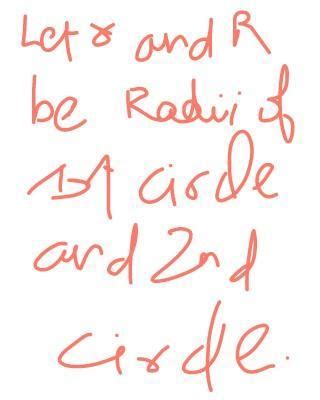 Let r and R
be Radii of
1st circle
and 2nd
circle.